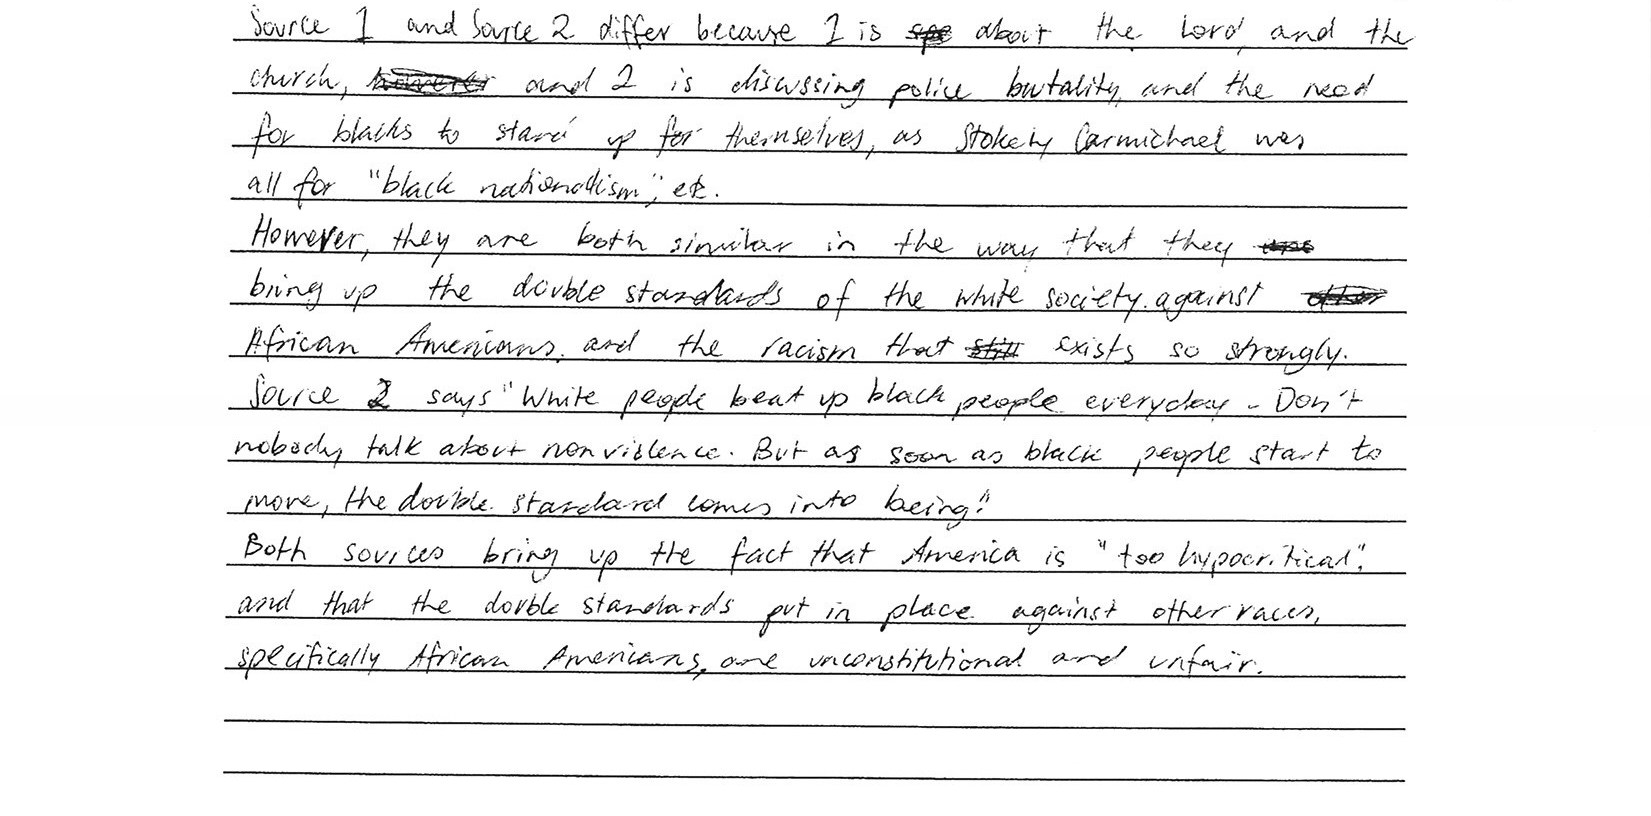 Source 1 and Source 2 differ because 1 is about the Lord, and the
church, and 2 is discussing police brutality, and the need
for blacks to stand up for themselves, as Stokely Carmichael was
all for "black nationalism", etc.
However, they are both similar in the way that they
bring up the double standards of the white society against
African Americans, and the racism that exists so strongly.
Source 2 says "White people beat up black people everyday - Don't
nobody talk about nonviolence. But as soon as black people start to
move, the double standard comes into being!"
Both sources bring up the fact that America is "too hypocritical",
and that the double standards put in place against other races,
specifically African Americans, are unconstitutional and unfair.